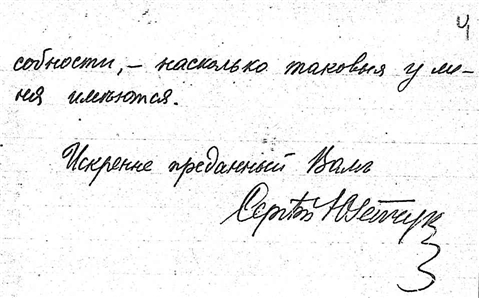 4
собности, – насколько таковыя у ме-
ня имѣются.
Искренне преданный Вамъ
Сергѣй